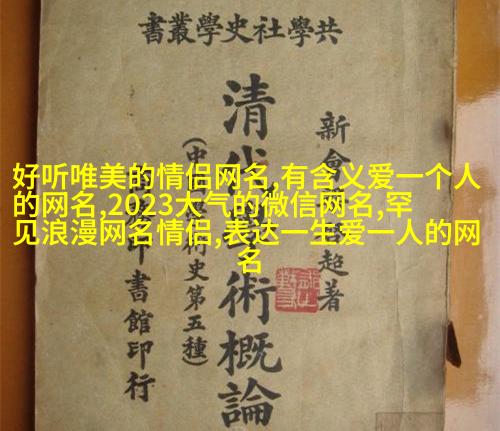 共學社史學叢書
新會超著
清代術概論
(中術史第五種)
印書館印行
好听唯美的情侣网名,有含义爱一个人
的网名,2023大气的微信网名,罕
见浪漫网名情侣,表达一生爱一人的网
名